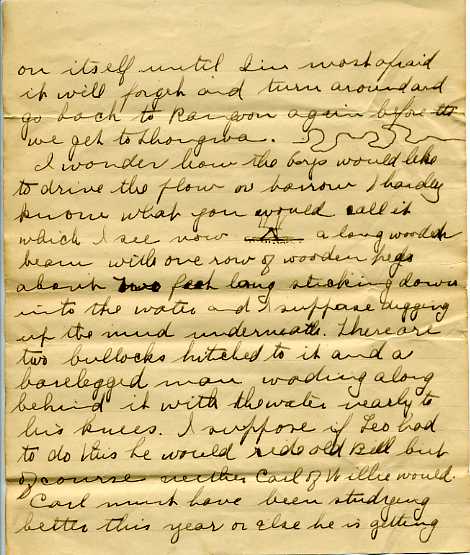 on itself until I'm most afraid
it will forget and turn around and
go back to Rangoon again before
we get to Thongwa.
I wonder how the boys would like
to drive the plow or harrow I hardly
know what you would call it
which I see now a long wooden
beam with one row of wooden pegs
about two feet long sticking down
into the water and I suppose digging
up the mud underneath. There are
two bullocks hitched to it and a
barelegged man wading along
behind it with the water nearly to
his knees. I suppose if Leo had
to do this he would ride old Bill but
of course neither Carl or Willie would.
Carl must have been studying
better this year or else he is getting